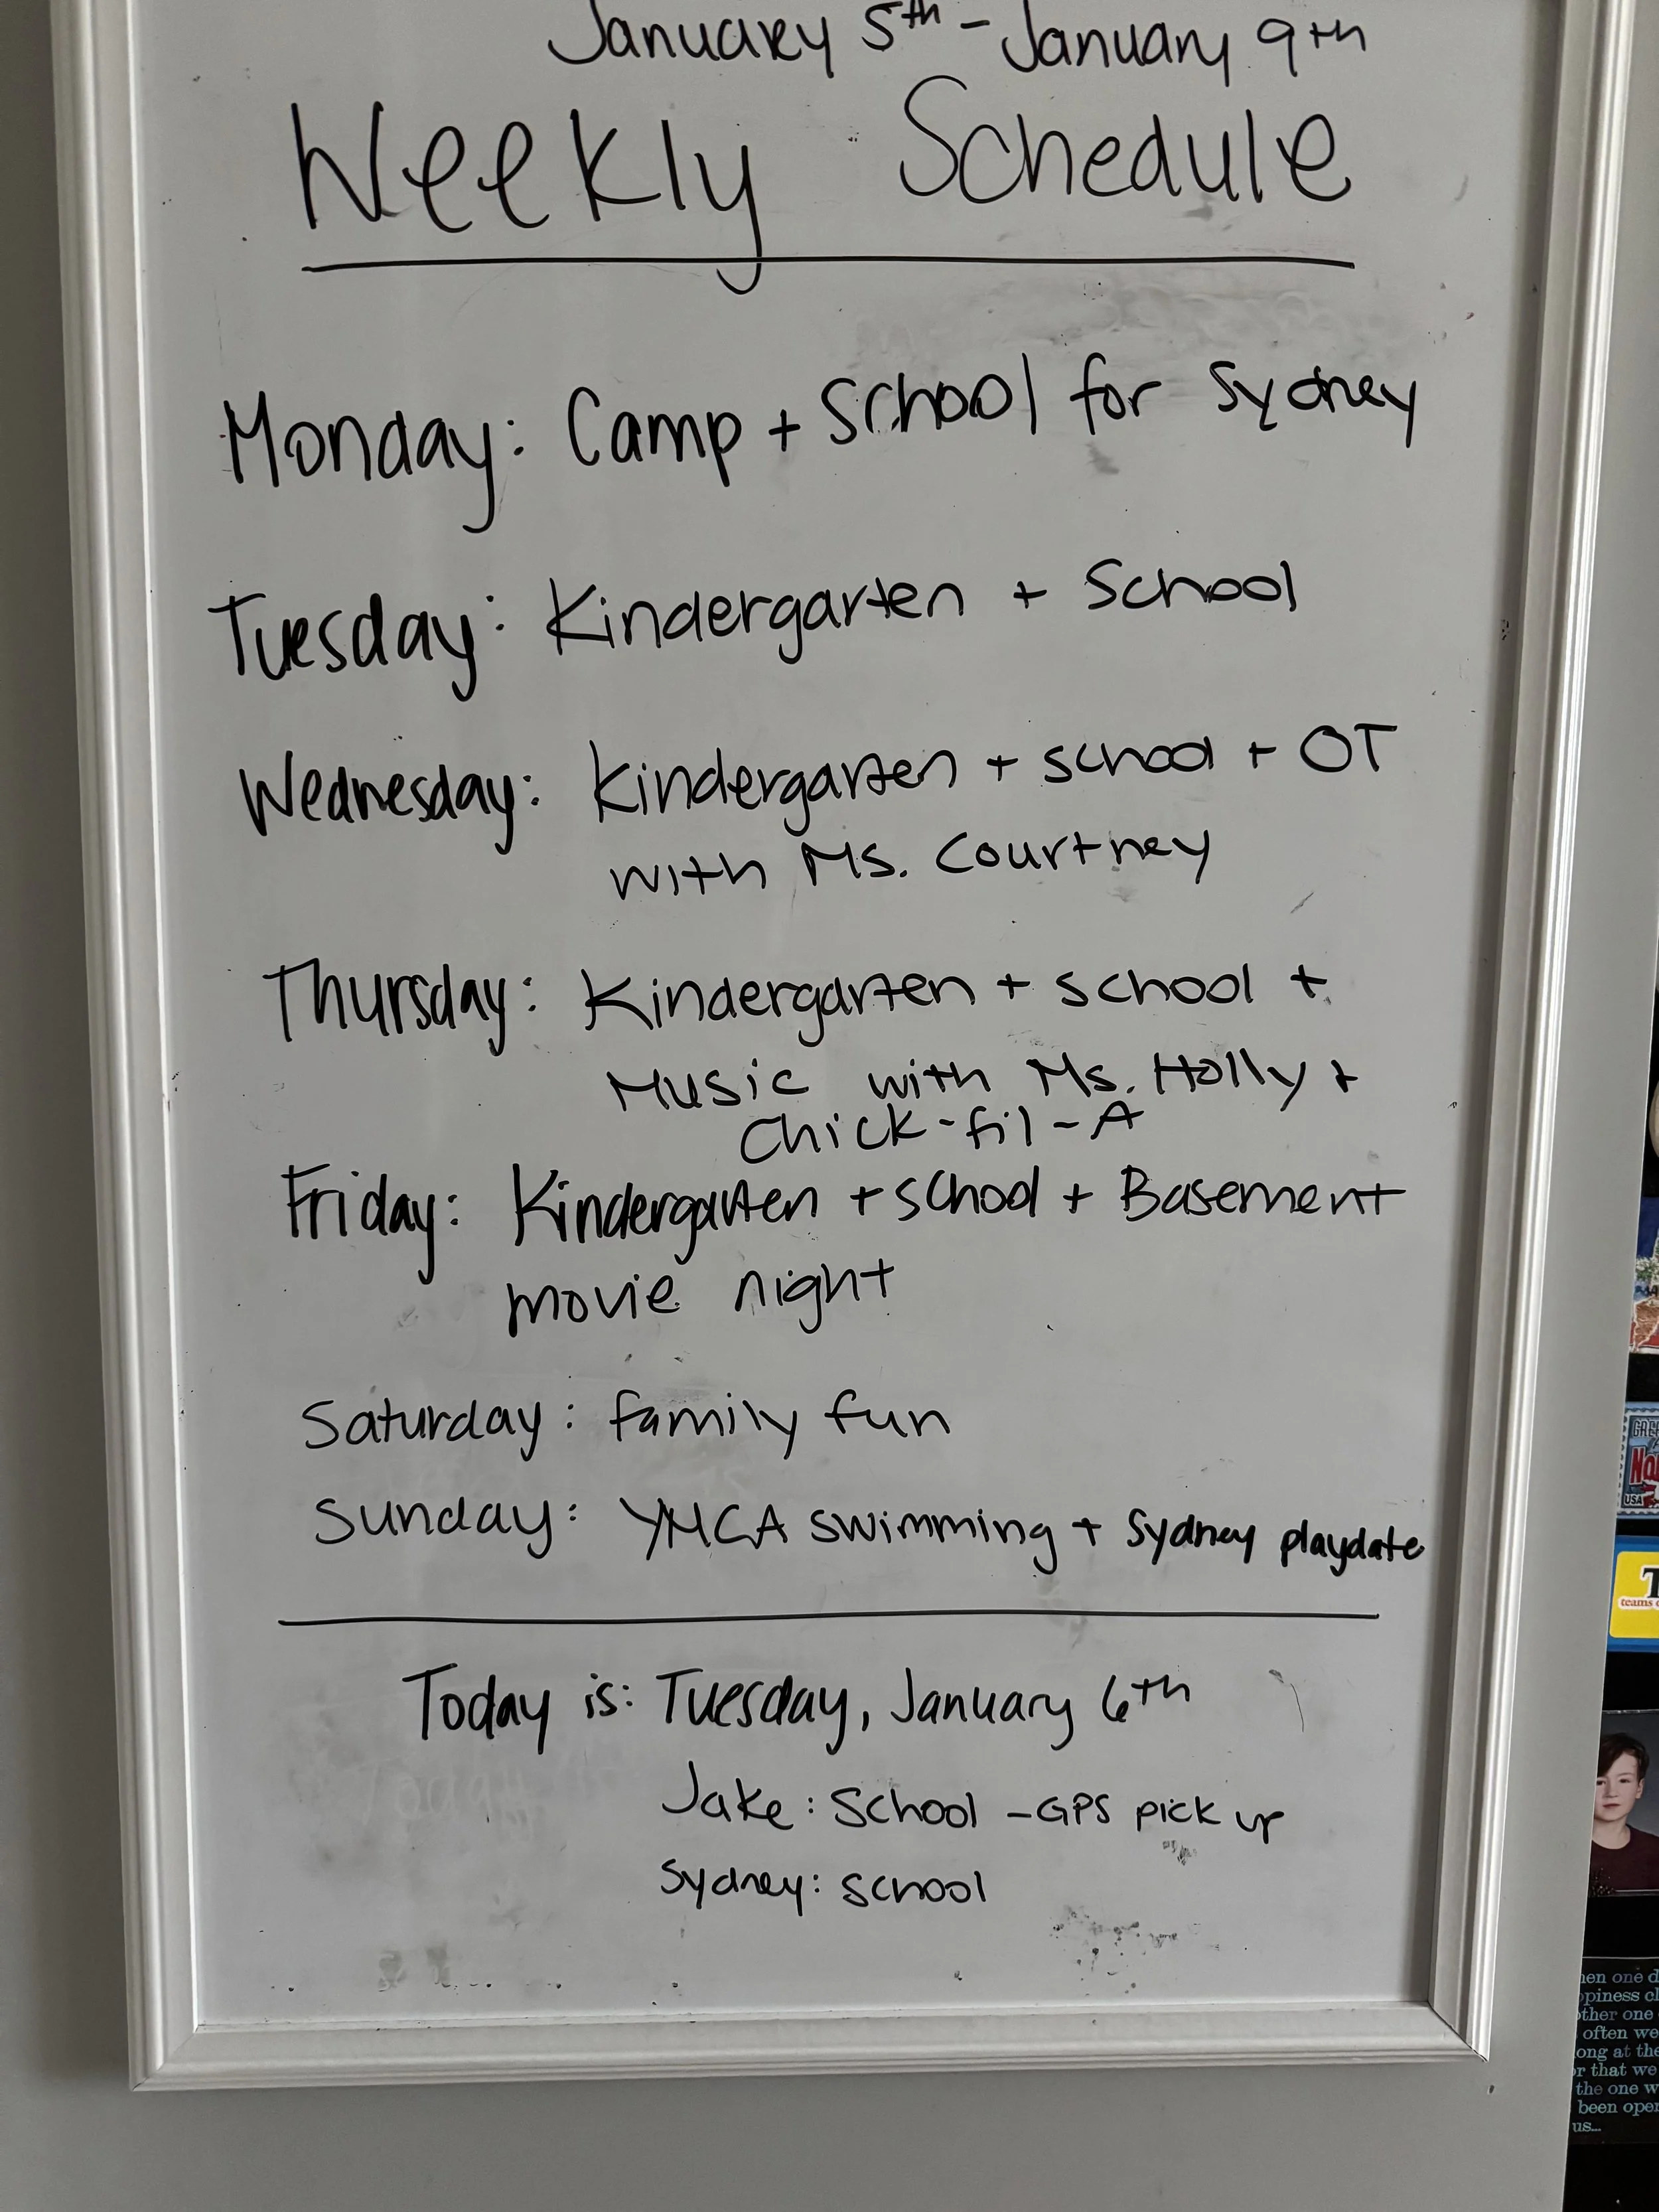 January 5th - January 9th
Weekly Schedule
Monday: Camp + School for Sydney
Tuesday: Kindergarten + School
Wednesday: Kindergarten + school + OT
with Ms. Courtney
Thursday: Kindergarten + school +
Music with Ms. Holly +
Chick-fil-A
Friday: Kindergarten + school + Basement
movie night
Saturday: family fun
Sunday: YMCA swimming + Sydney playdate
Today is: Tuesday, January 6th
Jake: School - GPS pick up
Sydney: school
USA
teams
one
often we
at the
that we
the one
been
us...